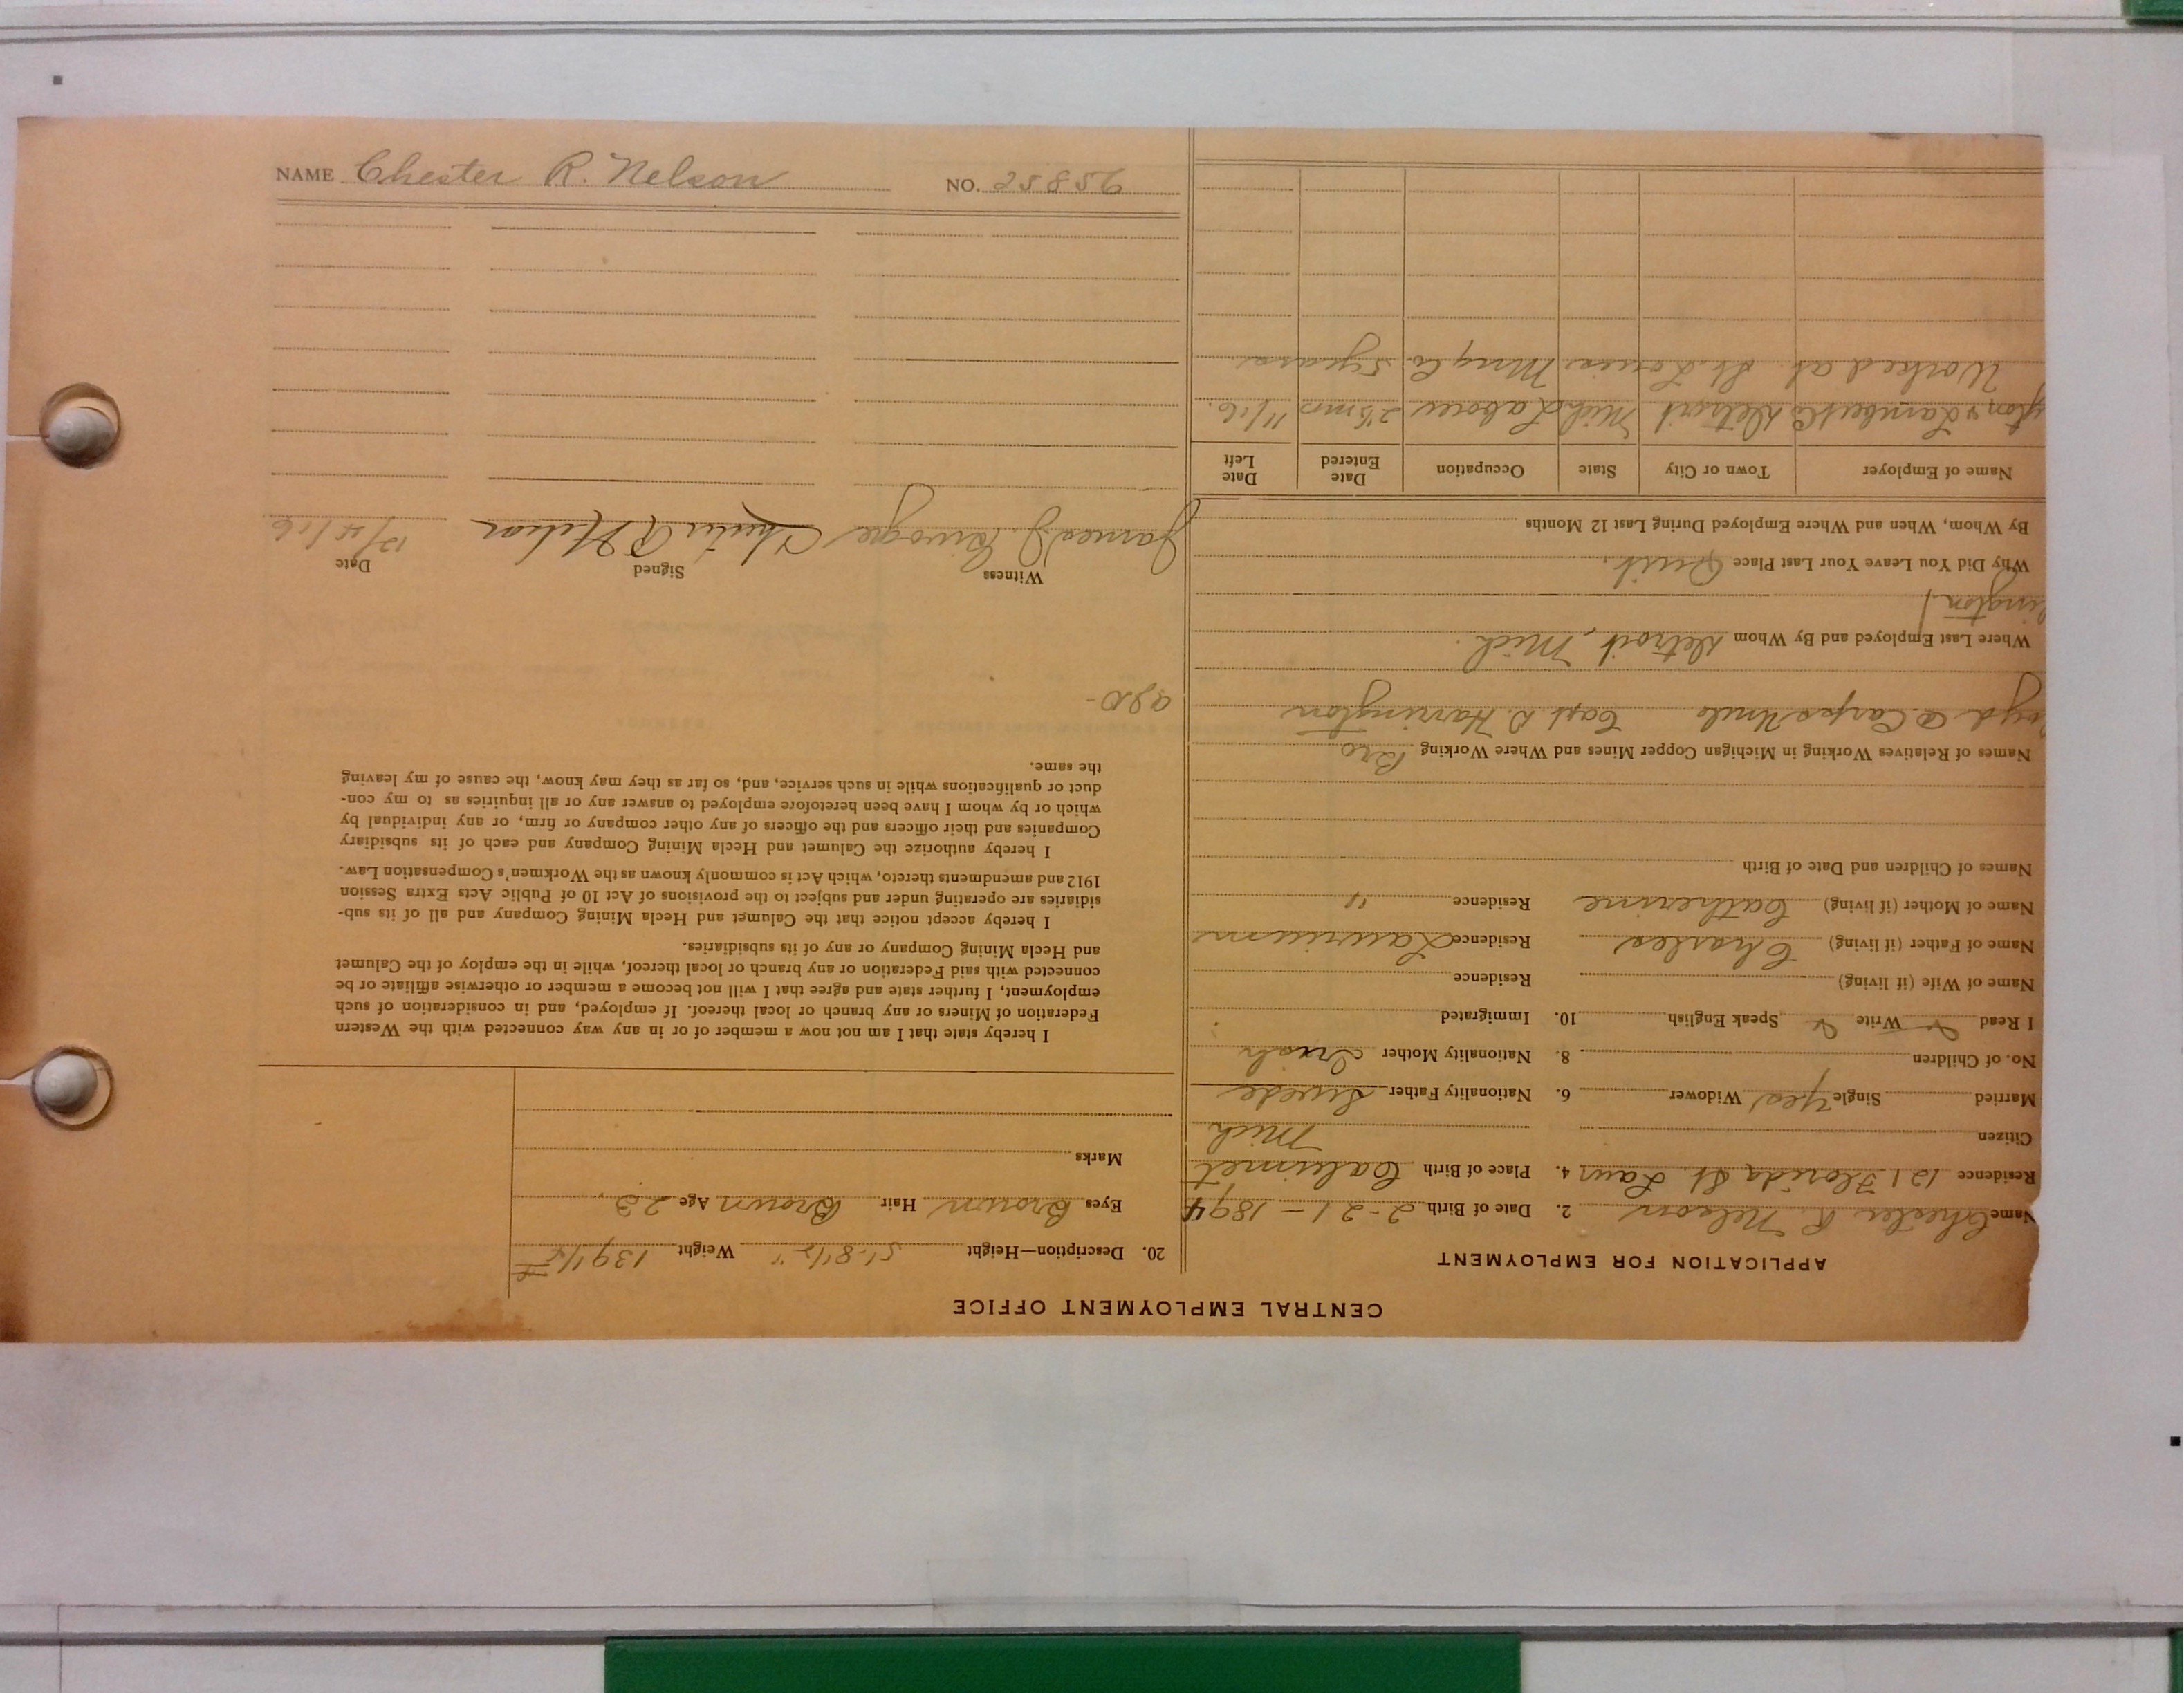 NAME Chester R. Nelson NO. 25856
CENTRAL EMPLOYMENT OFFICE
APPLICATION FOR EMPLOYMENT
Name Chester R. Nelson 2. Date of Birth 2-21-1894
Residence 121 Florida St. Laur 4. Place of Birth Calumet
Citizen Mich
Married Single Yes Widower 6. Nationality Father Swede
No. of Children 8. Nationality Mother Irish
I Read Write Speak English 10. Immigrated
Name of Wife (if living) Residence
Name of Father (if living) Charles Residence Laurium
Name of Mother (if living) Catherine Residence "
Names of Children and Date of Birth
Names of Relatives Working in Michigan Copper Mines and Where Working Bro
Carps Uncle Capt D. Harrington
Where Last Employed and By Whom Detroit, Mich.
Why Did You Leave Your Last Place Quit.
By Whom, When and Where Employed During Last 12 Months
Name of Employer Town or City State Occupation Date Entered Date Left
& Lambert Co Detroit Mich Labor 2 11/16.
Worked at St. Louis Mng Co 5 years
20. Description—Height 5'-8 1/2" Weight 139 1/2 #
Eyes Brown Hair Brown Age 23.
Marks
I hereby state that I am not now a member of or in any way connected with the Western
Federation of Miners or any branch or local thereof. If employed, and in consideration of such
employment, I further state and agree that I will not become a member or otherwise affiliate or be
connected with said Federation or any branch or local thereof, while in the employ of the Calumet
and Hecla Mining Company or any of its subsidiaries.
I hereby accept notice that the Calumet and Hecla Mining Company and all of its sub-
sidiaries are operating under and subject to the provisions of Act 10 of Public Acts Extra Session
1912 and amendments thereto, which Act is commonly known as the Workmen's Compensation Law.
I hereby authorize the Calumet and Hecla Mining Company and each of its subsidiary
Companies and their officers and the officers of any other company or firm, or any individual by
which or by whom I have been heretofore employed to answer any or all inquiries as to my con-
duct or qualifications while in such service, and, so far as they may know, the cause of my leaving
the same.
Witness Signed Date
James J. Chester R Nelson 12/4/16